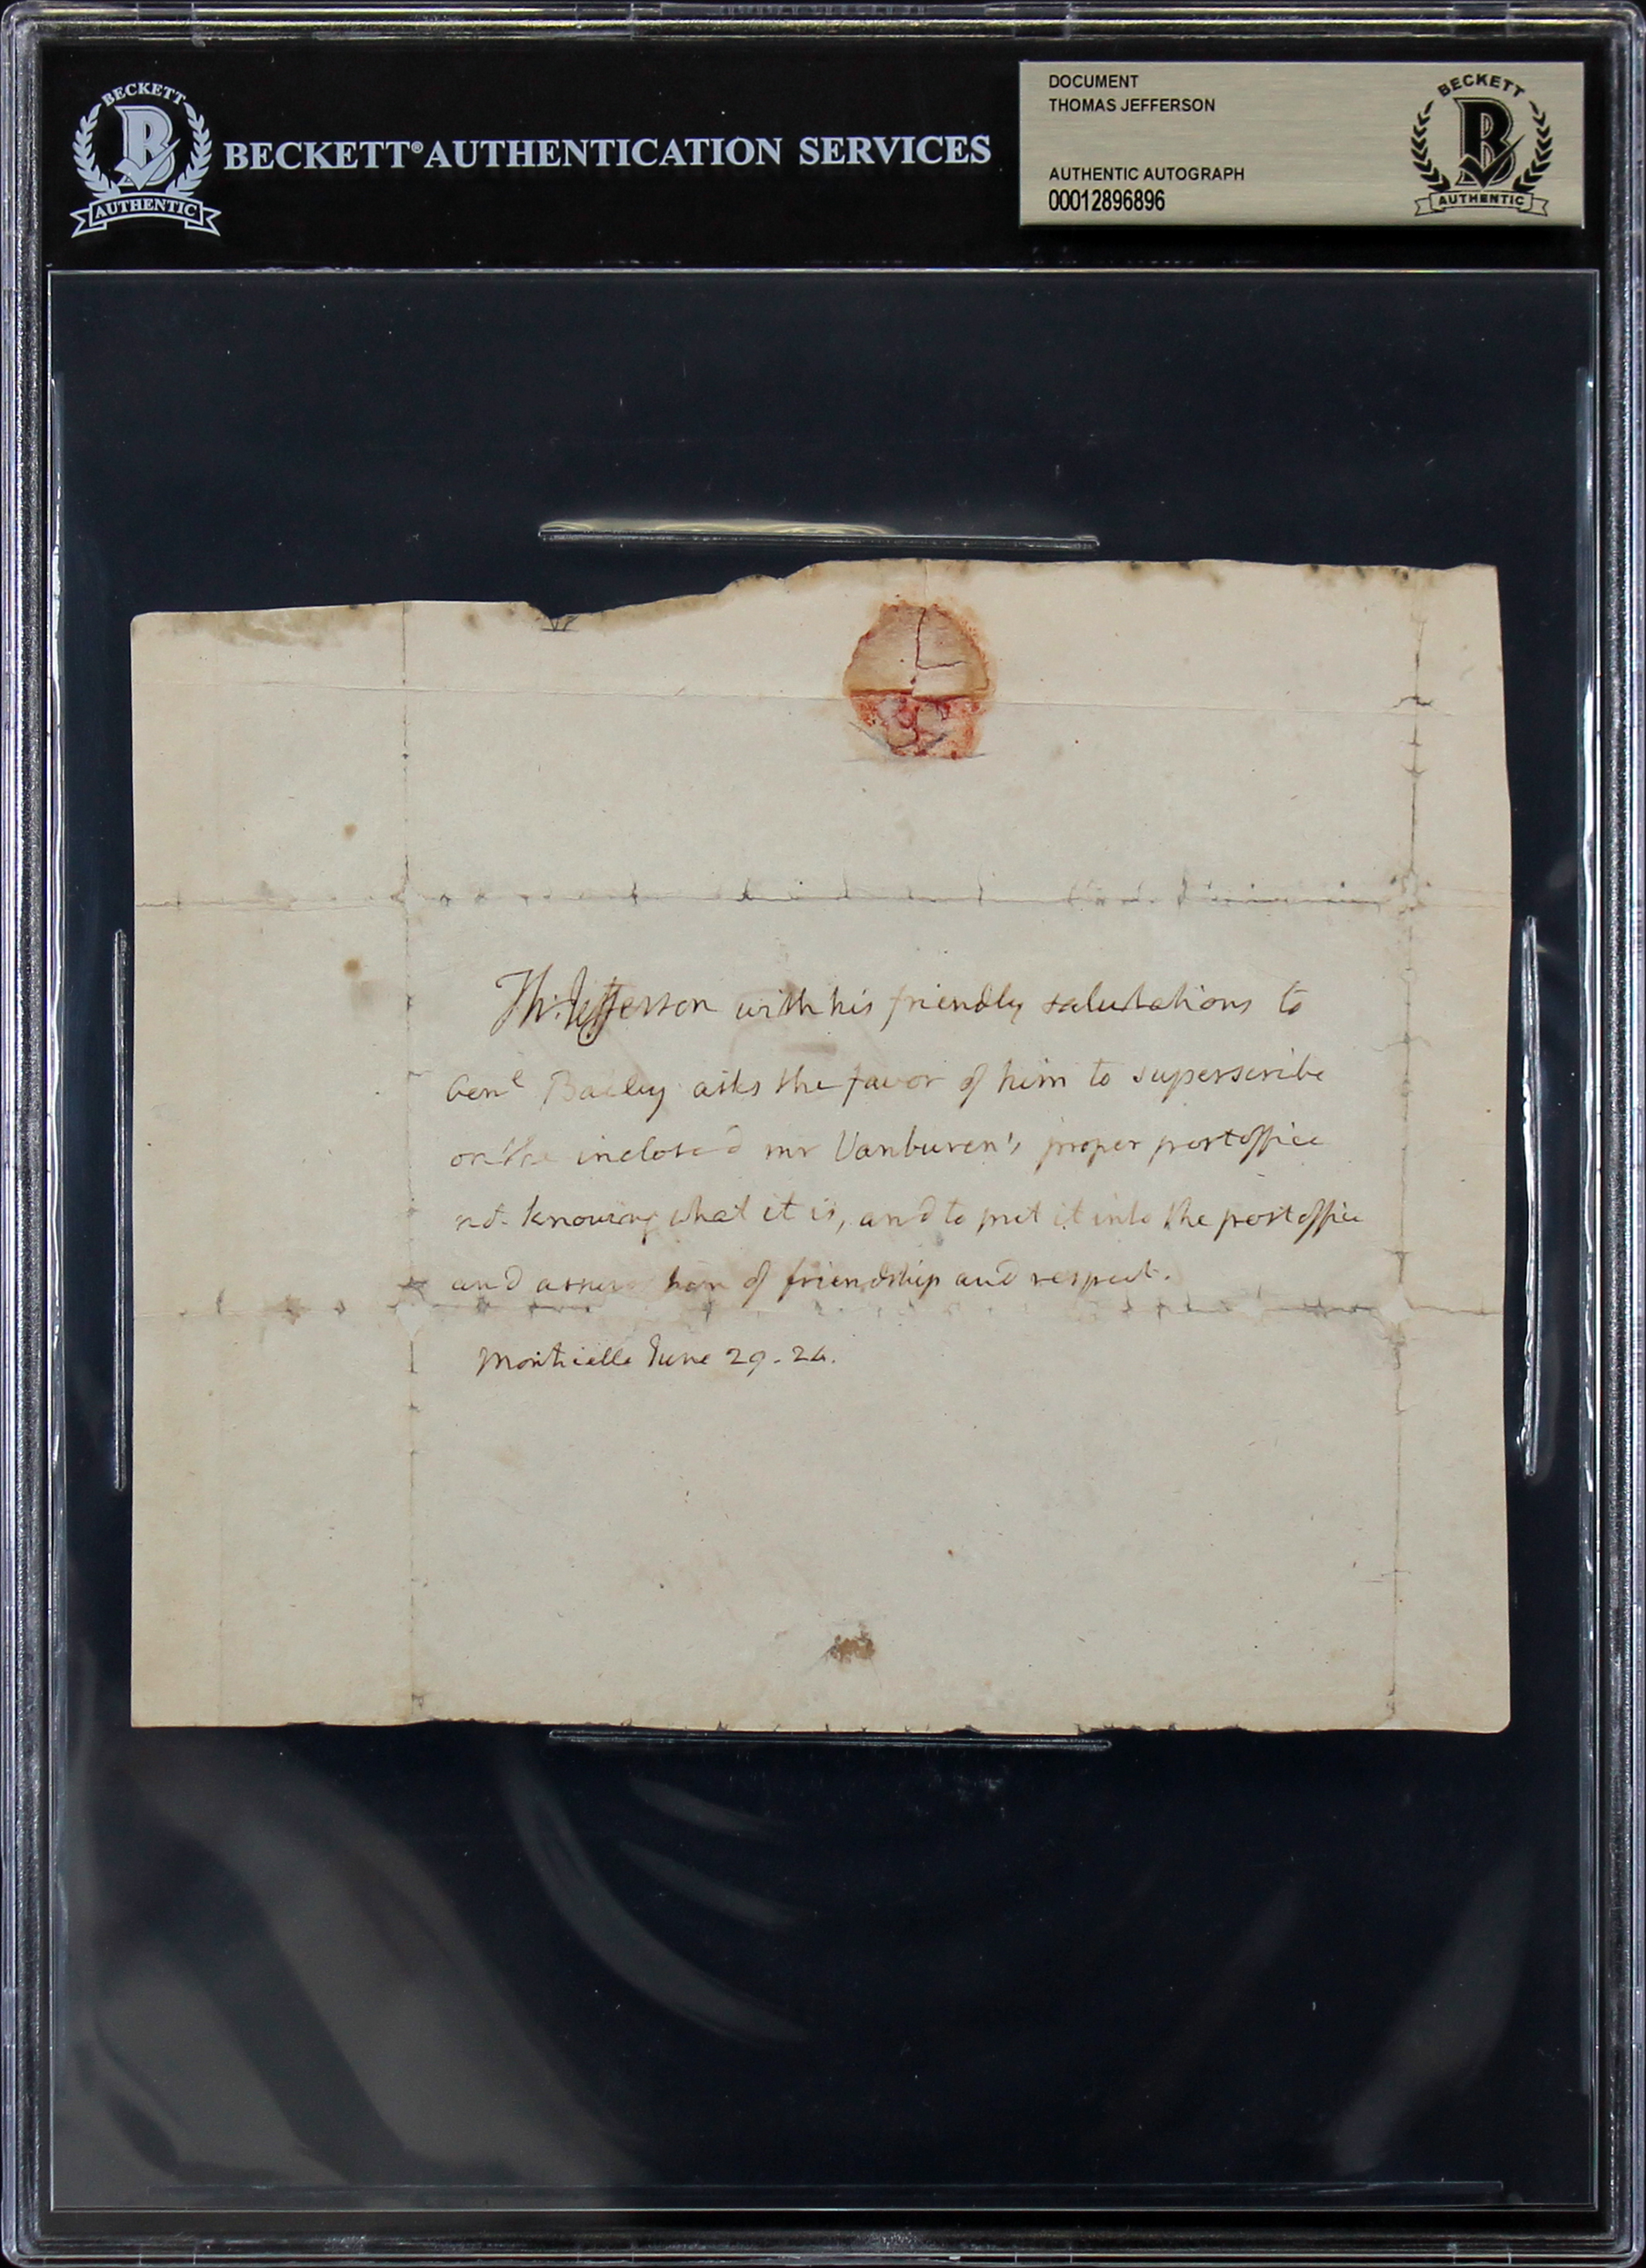 BECKETT
B
AUTHENTIC
BECKETT® AUTHENTICATION SERVICES
DOCUMENT
THOMAS JEFFERSON
AUTHENTIC AUTOGRAPH
00012896896
BECKETT
B
AUTHENTIC
Th: Jefferson with his friendly salutations to
Genl Bailey asks the favor of him to superscribe
on the inclosed mr Vanburen's proper postoffice
not knowing what it is, and to put it into the post office
and assures him of friendship and respect.
Monticello June 29. 24.